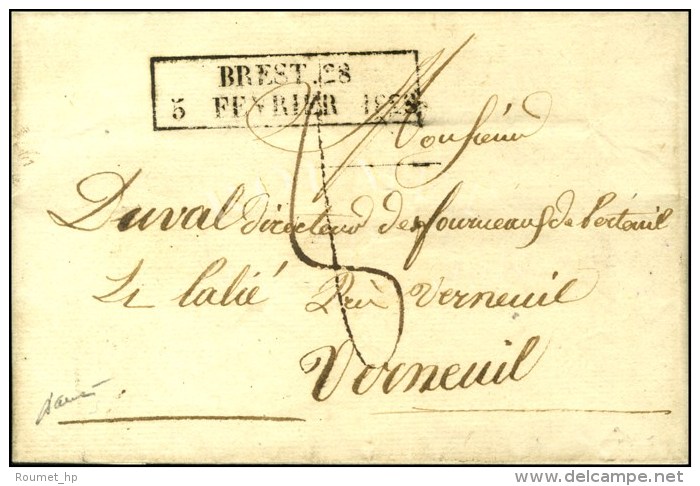 BREST. 28
5 FEVRIER 1828
Monsieur
Duval directeur des fourneaux de
Près Verneuil
Verneuil
Roumet_hp
delcampe.net